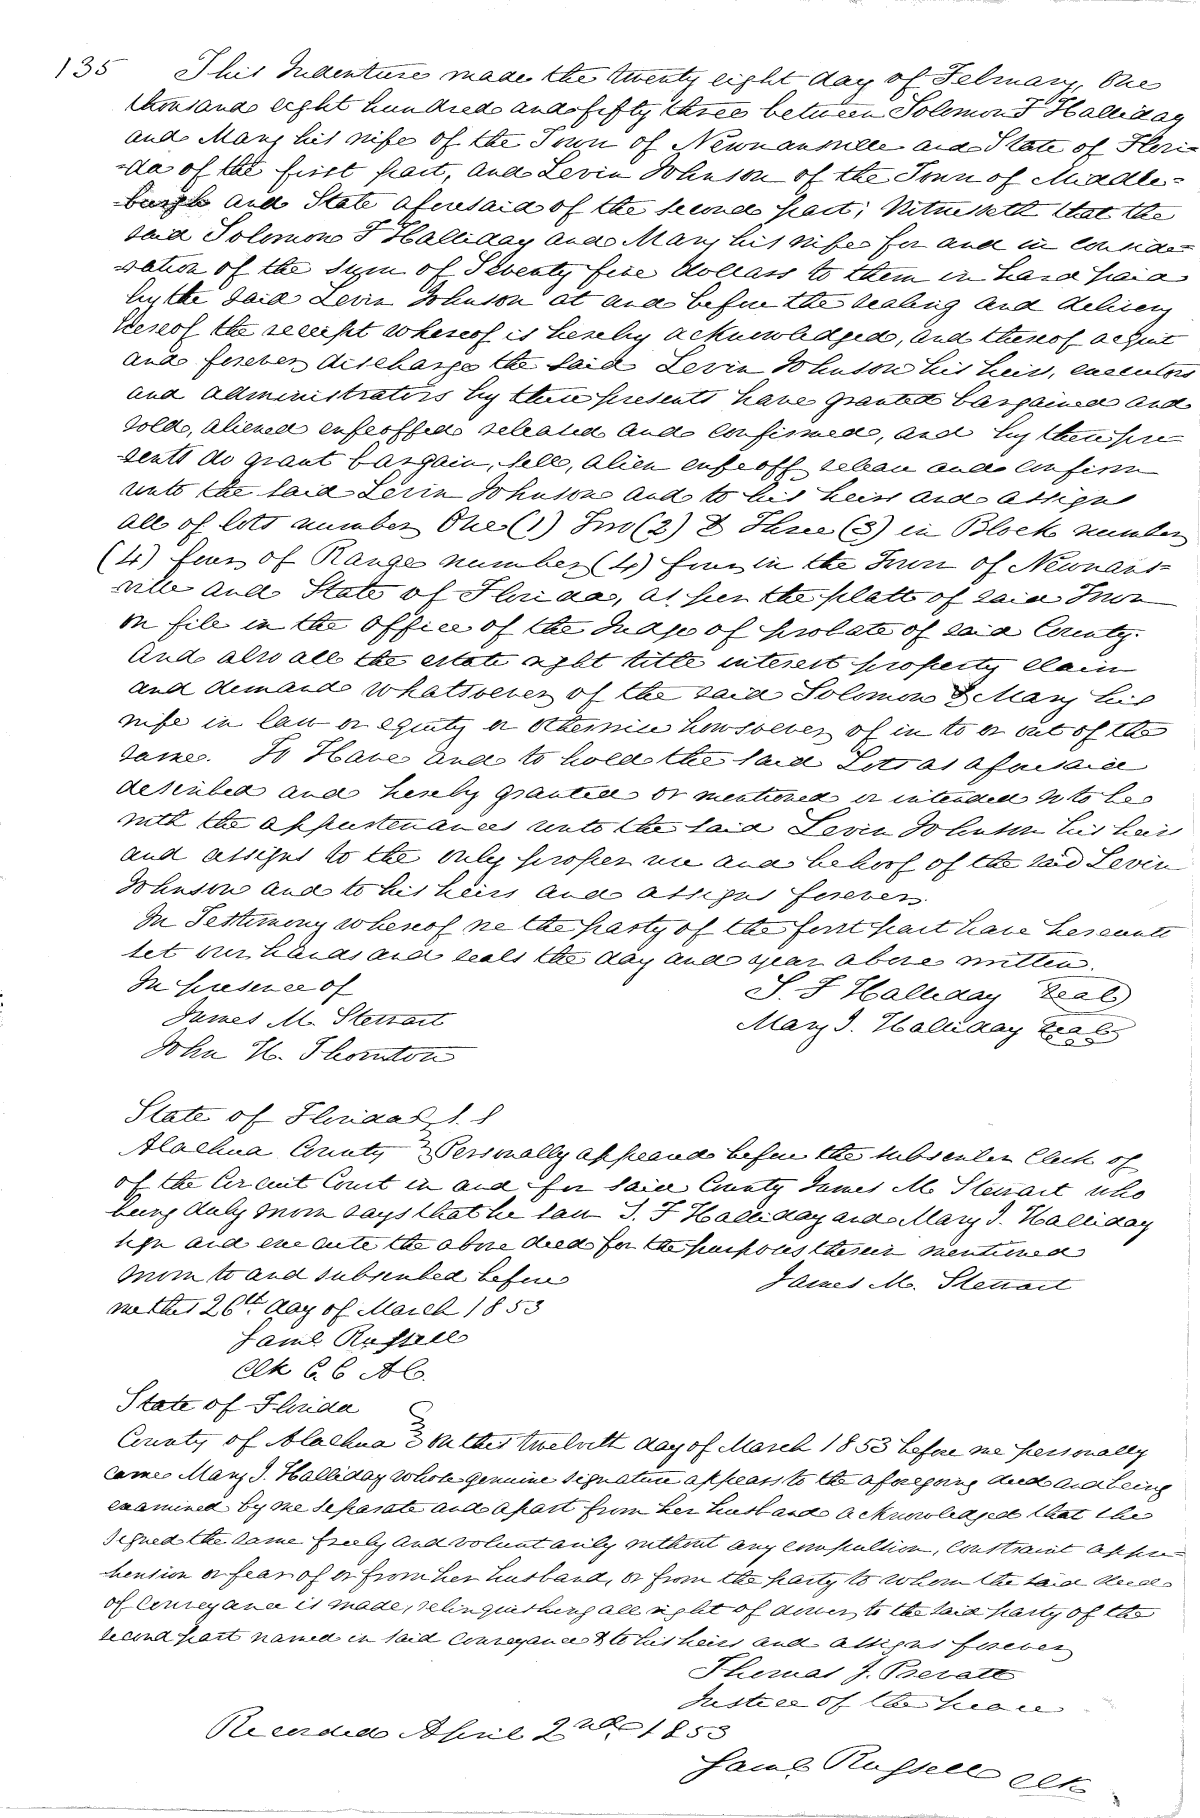 135 This Indenture made the twenty eight day of February, One
thousand eight hundred and fifty three between Solomon F Halliday
and Mary his wife of the Town of Newnansville and State of Flori=
=da of the first part, and Levin Johnson of the Town of Middle=
=burgh and State aforesaid of the second part; Witnesseth that the
said Solomon F Halliday and Mary his wife for and in conside=
=ration of the sum of Seventy five dollars to them in hand paid
by the said Levin Johnson at and before the sealing and delivery
thereof the receipt whereof is hereby acknowledged, and thereof acquit
and forever discharge the said Levin Johnson his heirs, executors
and administrators by these presents have granted bargained and
sold, aliened enfeoffed released and confirmed, and by these pre
=sents do grant bargain, sell, alien enfeoff release and confirm
unto the said Levin Johnson and to his heirs and assigns
all of lots number One (1) Two (2) & Three (3) in Block number
(4) four of Range number (4) four in the Town of Newnans=
ville and State of Florida, as per the platt of said Town
on file in the office of the Judge of probate of said County.
And also all the estate right title interest property claim
and demand whatsoever of the said Solomon & Mary his
wife in law or equity or otherwise howsoever of in to or out of the
same. To Have and to hold the said Lots as aforesaid
described and hereby granted or mentioned or intended so to be
with the appurtenances unto the said Levin Johnson his heirs
and assigns to the only proper use and behoof of the said Levin
Johnson and to his heirs and assigns forever.
In Testimony whereof we the party of the first part have hereunto
set our hands and seals the day and year above written.
In presence of S. F Halliday Seal
James M. Stewart Mary J. Halliday Seal
John H. Thornton
State of Florida S. S
Alachua County Personally appeared before the subscriber Clerk of
of the Circuit Court in and for said County James M Stewart who
being duly sworn says that he saw S. F Halliday and Mary J. Halliday
sign and execute the above deed for the purposes therein mentioned
Sworn to and subscribed before James M. Stewart
me this 26th day of March 1853
Saml Russell
Clk C. C A C.
State of Florida
County of Alachua On this twelvth day of March 1853 before me personally
came Mary J. Halliday whose genuine signature appears to the aforegoing deed and being
examined by me separate and apart from her husband acknowledged that she
signed the same freely and voluntarily without any compulsion, constraint appre=
hension or fear of or from her husband, or from the party to whom the said deed
of conveyance is made, relinquishing all right of dower to the said party of the
second part named in said conveyance & to his heirs and assigns forever
Thomas J. Prevatt
Justice of the peace
Recorded April 2nd 1853
Saml Russell Clk